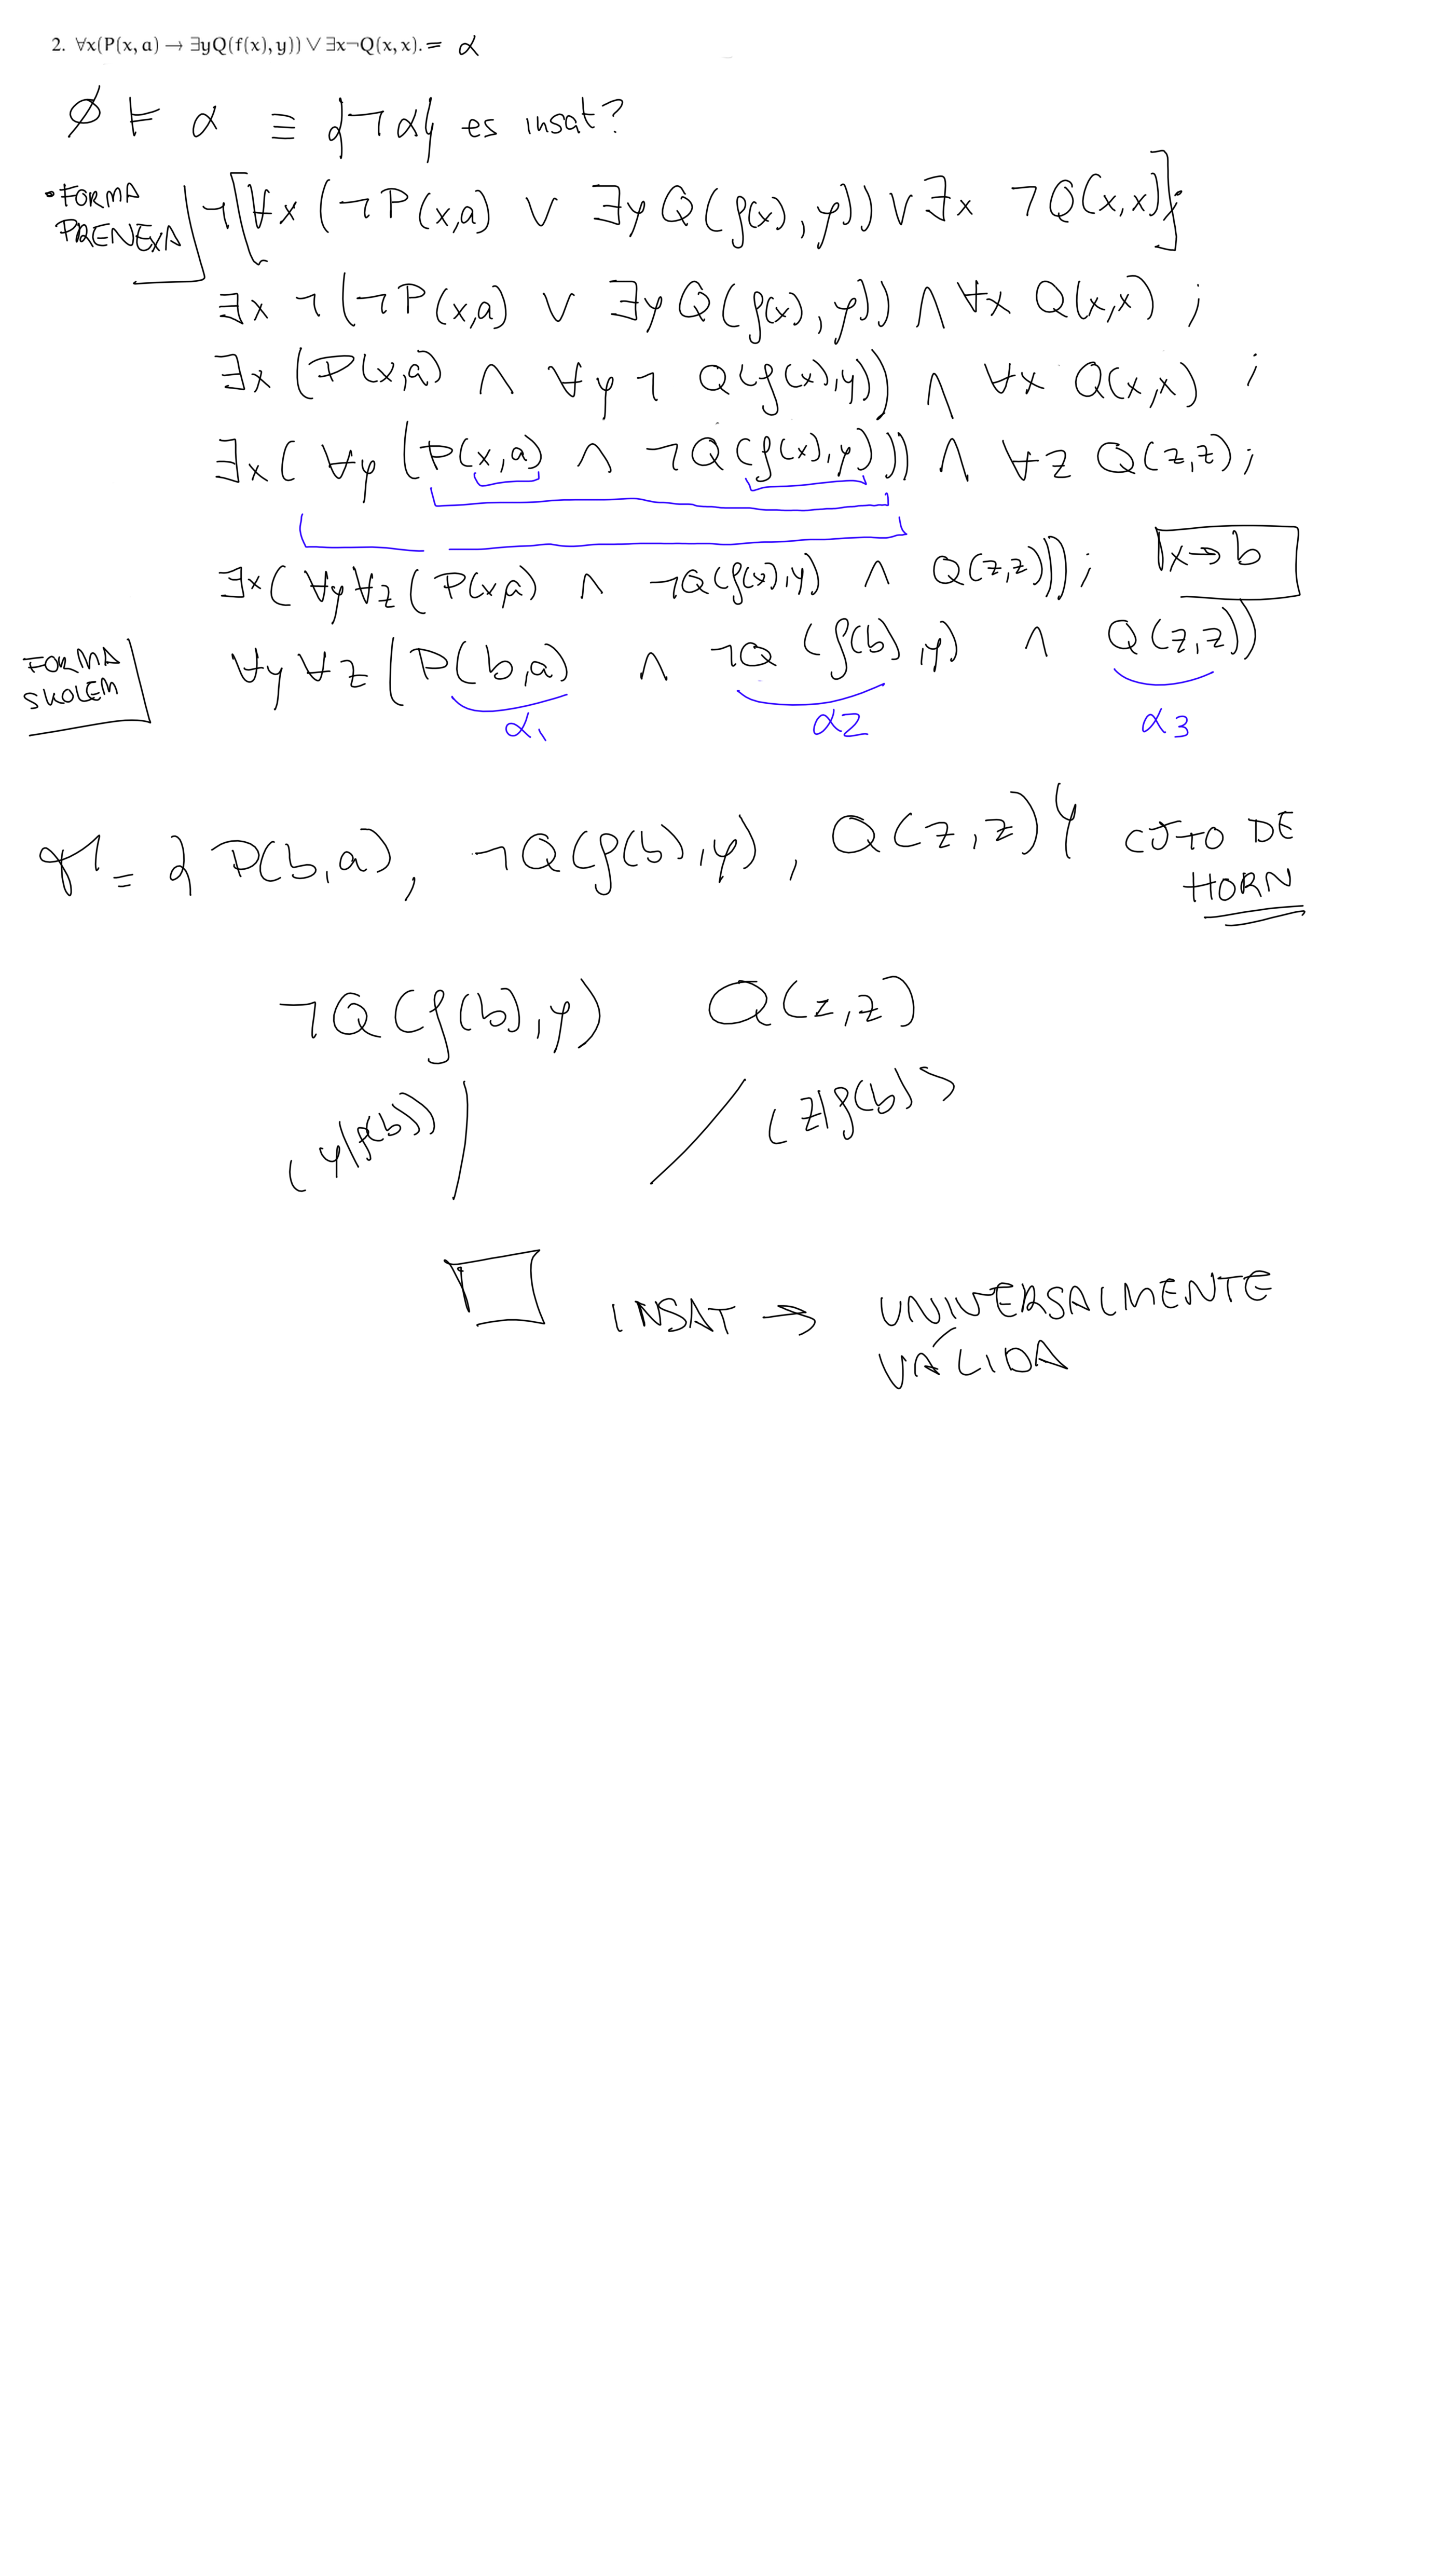 2. ∀x(P(x, a) → ∃yQ(f(x), y)) ∨ ∃x¬Q(x, x). = α
∅ ⊨ α ≡ {¬α} es insat?
• FORMA PRENEXA
¬[∀x (¬P(x,a) ∨ ∃y Q(f(x), y)) ∨ ∃x ¬Q(x,x)];
∃x ¬(¬P(x,a) ∨ ∃y Q(f(x), y)) ∧ ∀x Q(x,x) ;
∃x (P(x,a) ∧ ∀y ¬ Q(f(x),y)) ∧ ∀x Q(x,x) ;
∃x( ∀y (P(x,a) ∧ ¬Q(f(x),y))) ∧ ∀z Q(z,z);
∃x( ∀y∀z ( P(x,a) ∧ ¬Q(f(x),y) ∧ Q(z,z))); x→b
FORMA SKOLEM
∀y ∀z (P(b,a) ∧ ¬Q (f(b),y) ∧ Q(z,z))
α1 α2 α3
= { P(b,a), ¬Q(f(b),y), Q(z,z)} CJTO DE
HORN
¬Q(f(b),y) Q(z,z)
(y/f(b)) (z/f(b))
□ INSAT → UNIVERSALMENTE
VÁLIDA